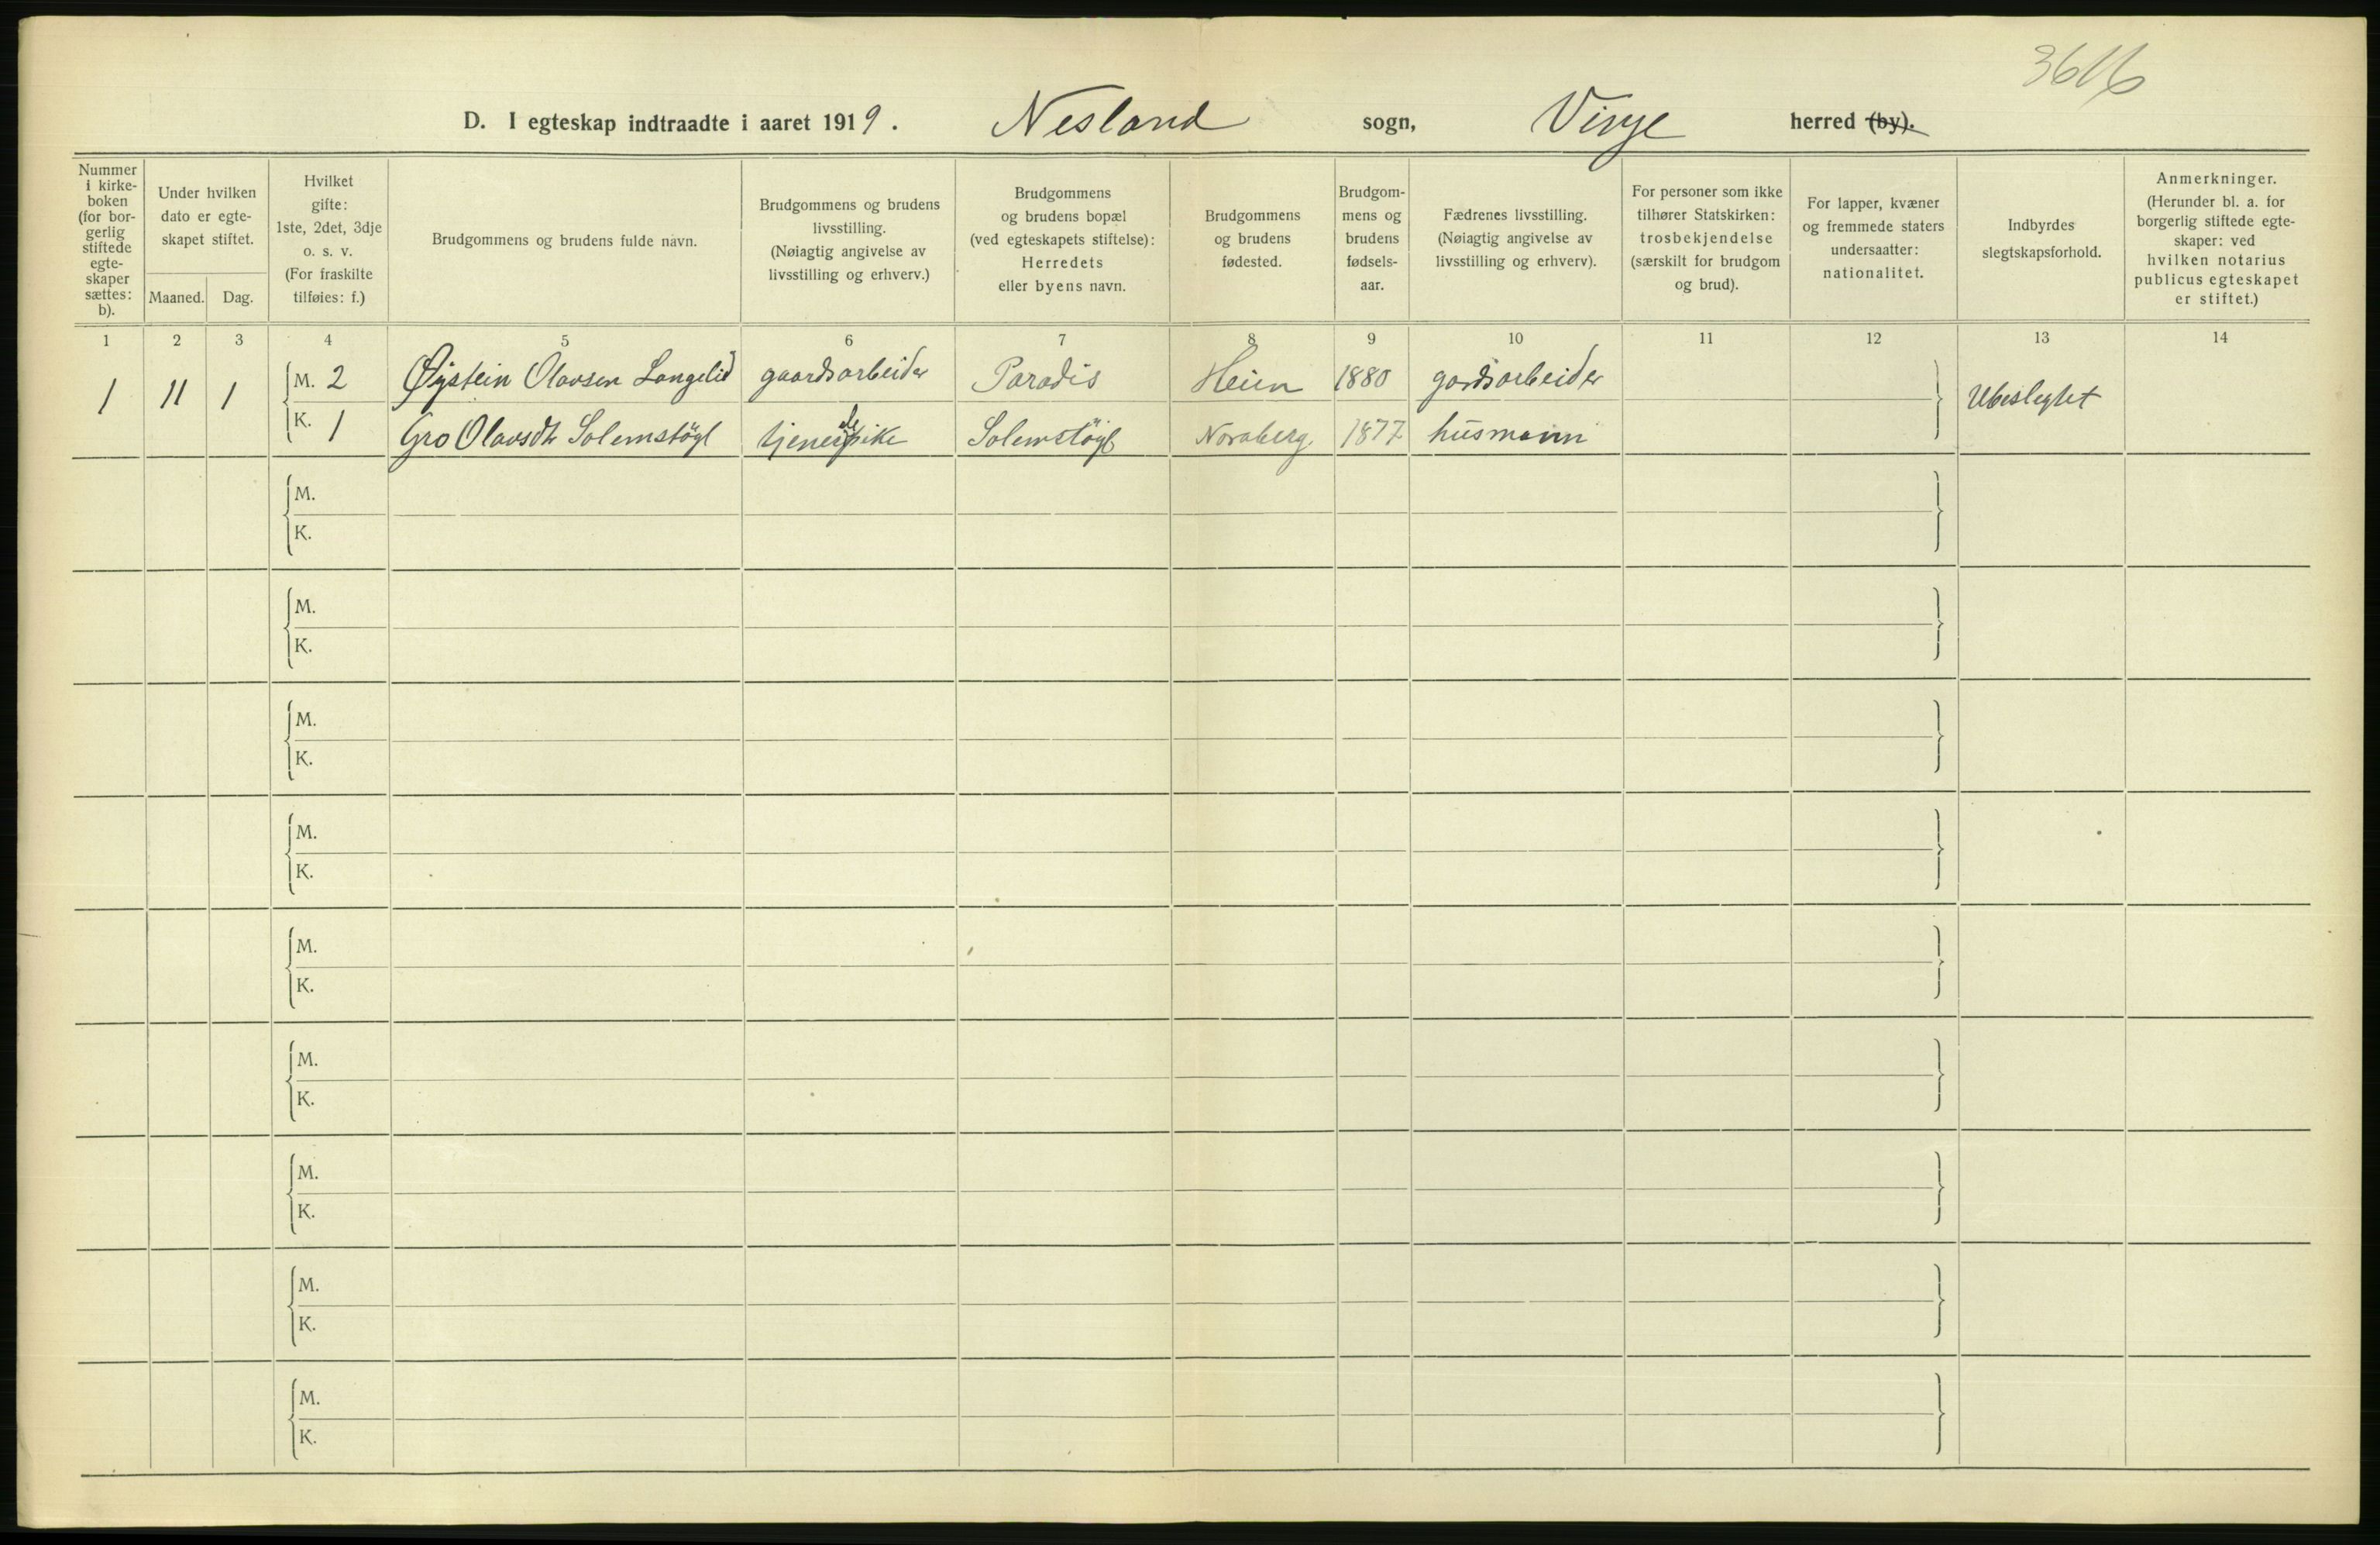 3616
D. I egteskap indtraadte i aaret 1919. Nesland sogn, Vinje herred (by).
Nummer i kirke-boken (for bor-gerlig stiftede egte-skaper sættes: b).
Under hvilken dato er egte-skapet stiftet.
Maaned. Dag.
Hvilket gifte: 1ste, 2det, 3dje o. s. v. (For fraskilte tilføies: f.)
Brudgommens og brudens fulde navn.
Brudgommens og brudens livsstilling. (Nøiagtig angivelse av livsstilling og erhverv.)
Brudgommens og brudens bopæl (ved egteskapets stiftelse): Herredets eller byens navn.
Brudgommens og brudens fødested.
Brudgom-mens og brudens fødsels-aar.
Fædrenes livsstilling. (Nøiagtig angivelse av livsstilling og erhverv).
For personer som ikke tilhører Statskirken: trosbekjendelse (særskilt for brudgom og brud).
For lapper, kvæner og fremmede staters undersaatter: nationalitet.
Indbyrdes slegtskapsforhold.
Anmerkninger. (Herunder bl. a. for borgerlig stiftede egte-skaper: ved hvilken notarius publicus egteskapet er stiftet.)
1 2 3 4 5 6 7 8 9 10 11 12 13 14
1 11 1 M. 2 Øystein Olavsen Langelid gaardsarbeider Paradis Heien 1880 gardsarbeider Ubeslegtet
K. 1 Gro Olavsdtr Solemstøyl tjenerpike Solemstøyl Noraberg 1877 husmann
M.
K.
M.
K.
M.
K.
M.
K.
M.
K.
M.
K.
M.
K.
M.
K.
M.
K.